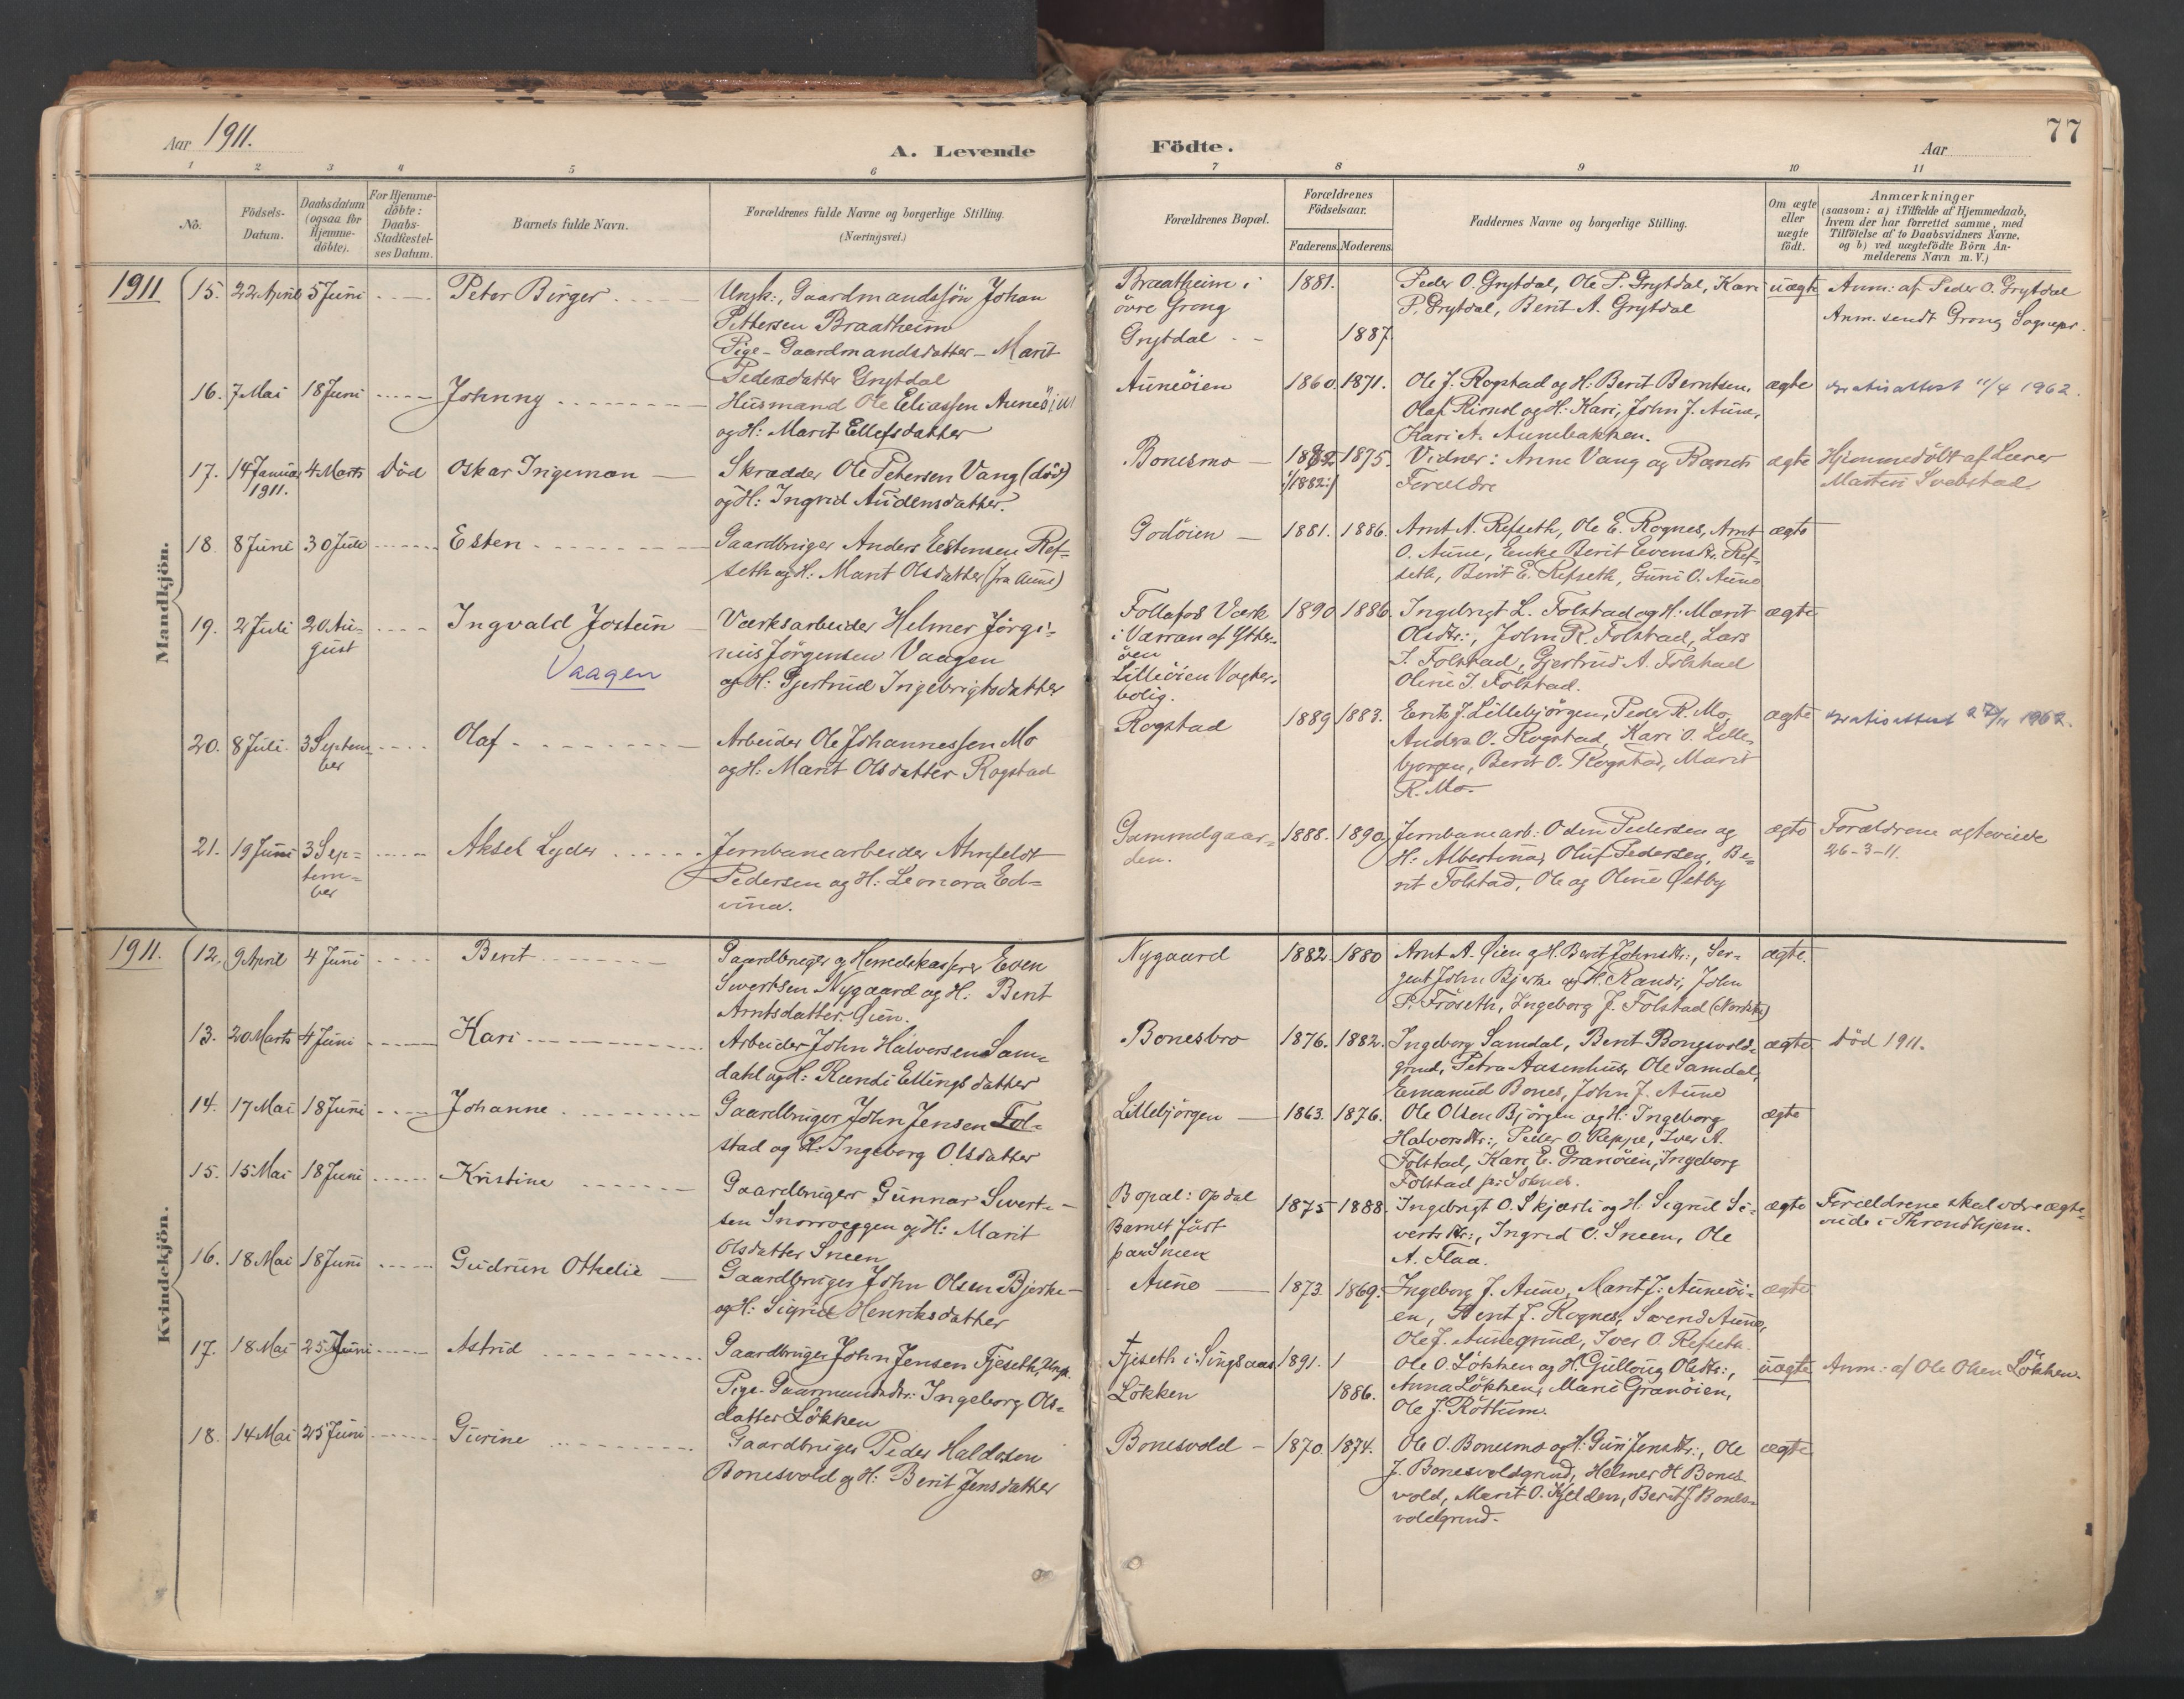 Aar 1911.
A. Levende
Födte.
Aar
77
1 2 3 4 5 6 7 8 9 10 11
No.
Födsels-
Datum.
Daabsdatum
(ogsaa for
Hjemme-
döbte).
For Hjemme-
döbte:
Daabs-
Stadfestel-
ses Datum.
Barnets fulde Navn.
Forældrenes fulde Navne og borgerlige Stilling.
(Næringsvei.)
Forældrenes Bopæl.
Forældrenes
Födselsaar.
Faderens. Moderens.
Faddernes Navne og borgerlige Stilling.
Om ægte
eller
uægte
födt.
Anmærkninger
(saasom: a) i Tilfælde af Hjemmedaab,
hvem der har forrettet samme, med
Tilföielse af to Daabsvidners Navne,
og b) ved uægtefödte Börn An-
melderens Navn m.V.)
Mandkjön.
1911
15. 22 April 5 Juni
Peter Birger
Ungk:, Gaardmandssön Johan
Pettersen Braatheim
Pige - Gaardmandsdatter - Marit
Pedersdatter Grytdal
Braatheim i
övre Grong
Grytdal
1881.
1887
Peder O. Grytdal, Ole P. Grytdal, Kari
P. Grytdal, Berit A. Grytdal
uægte
Anm: af Peder O. Grytdal
Anm. sendt Grong Sognepr.
16. 7 Mai 18 Juni
Johnny
Husmand Ole Eliassen Auneöien
og H: Marit Ellefsdatter
Auneöien
1860. 1871.
Ole J. Rogstad og H: Berit Berntsen,
Olaf Rimol og H: Kari, John J. Aune,
Kari A. Aunebakken.
ægte
gratisattest 11/4 1962.
17. 14 Januar 4 Marts Död
1911.
Oskar Ingeman
Skrædder Ole Petersen Vang (död)
og H: Ingrid Audensdatter.
Bonesmo
1875.
/:1882:/
Vidner: Anne Vang og Barnets
Forældre
ægte
Hjemmedöbt af Lærer
Morten Svebstad.
18. 8 Juni 30 Juli
Esten
Gaardbruger Anders Estensen Ref-
seth og H: Marit Olsdatter (fra Aune)
Godöien
1881. 1886.
Arnt A. Refseth, Ole E. Rognes, Arnt
O. Aune, Enke Berit Evensdtr. Ref-
seth, Berit E. Refseth, Guri O. Aune
ægte
19. 2 Juli 20 Au-
gust
Ingvald Jostein
Vaagen
Værksarbeider Helmer Jörgi-
nius Jörgensen Vaagen
og H: Gjertrud Ingebrigtsdatter
Follafos Værk
i Værran af Ytter-
öen
Lilleöien Vogter-
bolig.
1890 1886.
Ingebrigt L. Folstad og H: Marit
Olsdtr:, John R. Folstad, Lars
I. Folstad, Gjertrud A. Folstad
Oline I. Folstad.
ægte
20. 8 Juli 3 Septem-
ber
Olaf
Arbeider Ole Johannessen Mo
og H: Marit Olsdatter Rogstad
Rogstad
1889 1883.
Erik J. Lillebjörgen, Peder R. Mo,
Anders O. Rogstad, Kari O. Lille-
bjorgen, Berit O. Rogstad, Marit
R. Mo.
ægte
gratisattest 1962.
21. 19 Juni 3 Sep-
tem-
ber
Aksel Lyder
Jernbanearbeider Ahnfeldt
Pedersen og H: Leonora Ed-
vina.
Gammelgaar-
den.
1888. 1890
Jernbanearb: Oden Pedersen og
H: Albertina, Oluf Pedersen, Be-
rit Folstad, Ole og Oline Østby
ægte
Forældrene ægteviede
26-3-11.
Kvindekjön.
1911.
12. 9 April 4 Juni
Berit
Gaardbruger og Herredskasserer Even
Sivertsen Nygaard og H: Berit
Arntsdatter Øien.
Nygaard
1882. 1880
Arnt A. Øien og H. Berit Johnsdtr:, Ser-
gent John Bjerke og H: Randi, John
P. Fröseth, Ingeborg J. Folstad
ægte.
13. 20 Marts 4 Juni
Kari
Arbeider John Halvorsen Sam-
dahl og H: Randi Ellingsdatter
Bonesbro
1876. 1882.
Ingeborg Samdal, Berit Bonesvold-
grind, Petra Aasenhus, Ole Samdal,
Emanuel Bones, John J. Aune
ægte
Död 1911.
14. 17 Mai 18 Juni
Johanne
Gaardbruger John Jensen Fol-
stad og H: Ingeborg Olsdatter
Lillebjörgen
1863. 1876.
Ole Olsen Björgen og H: Ingeborg
Halvorsdtr:, Peder O. Reppe, Iver A.
Folstad, Kari E. Granöien, Ingeborg
Folstad
ægte
15. 15 Mai 18 Juni
Kristine
Gaardbruger Gunnar Sivert-
sen Snoroeggen og H: Marit
Olsdatter Sneen
Bopæl: Opdal
Barnet födt
paa Sneen
1875 1888
Ingebrigt O. Skjærli og H: Sigrid Si-
vertsdtr:, Ingrid O. Sneen, Ole
A. Flaa.
ægte
Forældrene skal være ægte-
viede i Throndhjem.
16. 18 Mai 18 Juni
Gudrun Othelie
Gaardbruger John Olsen Bjerke
og H: Sigrid Henriksdatter
Aune
1873. 1869.
Ingeborg J. Aune, Marit J. Auneöi-
en, Berit J. Rognes, Svend Aune,
Ole J. Aunegrind, Iver O. Refseth
ægte
17. 18 Mai 25 Juni
Astrid
Gaardbruger John Jensen Fjeseth, Ungk.
Pige-Gaarmandsdtr: Ingeborg Ols-
datter Lökken
Fjeseth i Singsaas
Lökken
1891.
1886.
Ole O. Lökken og H: Gullaug Olsdtr:,
Anna Lökken, Marit Granöien,
Ole J. Röttum.
uægte
Anm: af Ole Olsen Lökken.
18. 14 Mai 25 Juni
Gurine
Gaardbruger Peder Haldosen
Bonesvold og H: Berit Jensdatter
Bonesvold
1870. 1874.
Ole O. Bonesmo og H: Guri Jensdtr:, Ole
J. Bonesvoldgrind, Helmer H. Bones-
vold, Marit O. Kjelden, Berit J. Bones-
voldgrind.
ægte